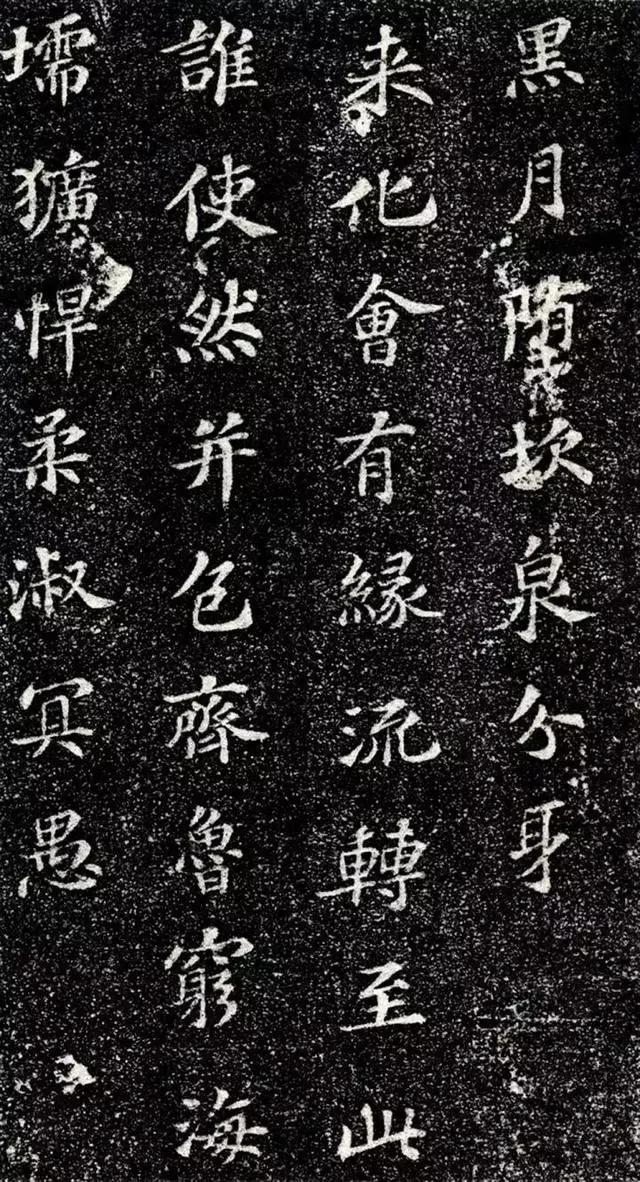 黑月墮坎泉分身
来化會有緣流轉至此
誰使然并包齊魯窮海
壖獷悍柔淑冥愚